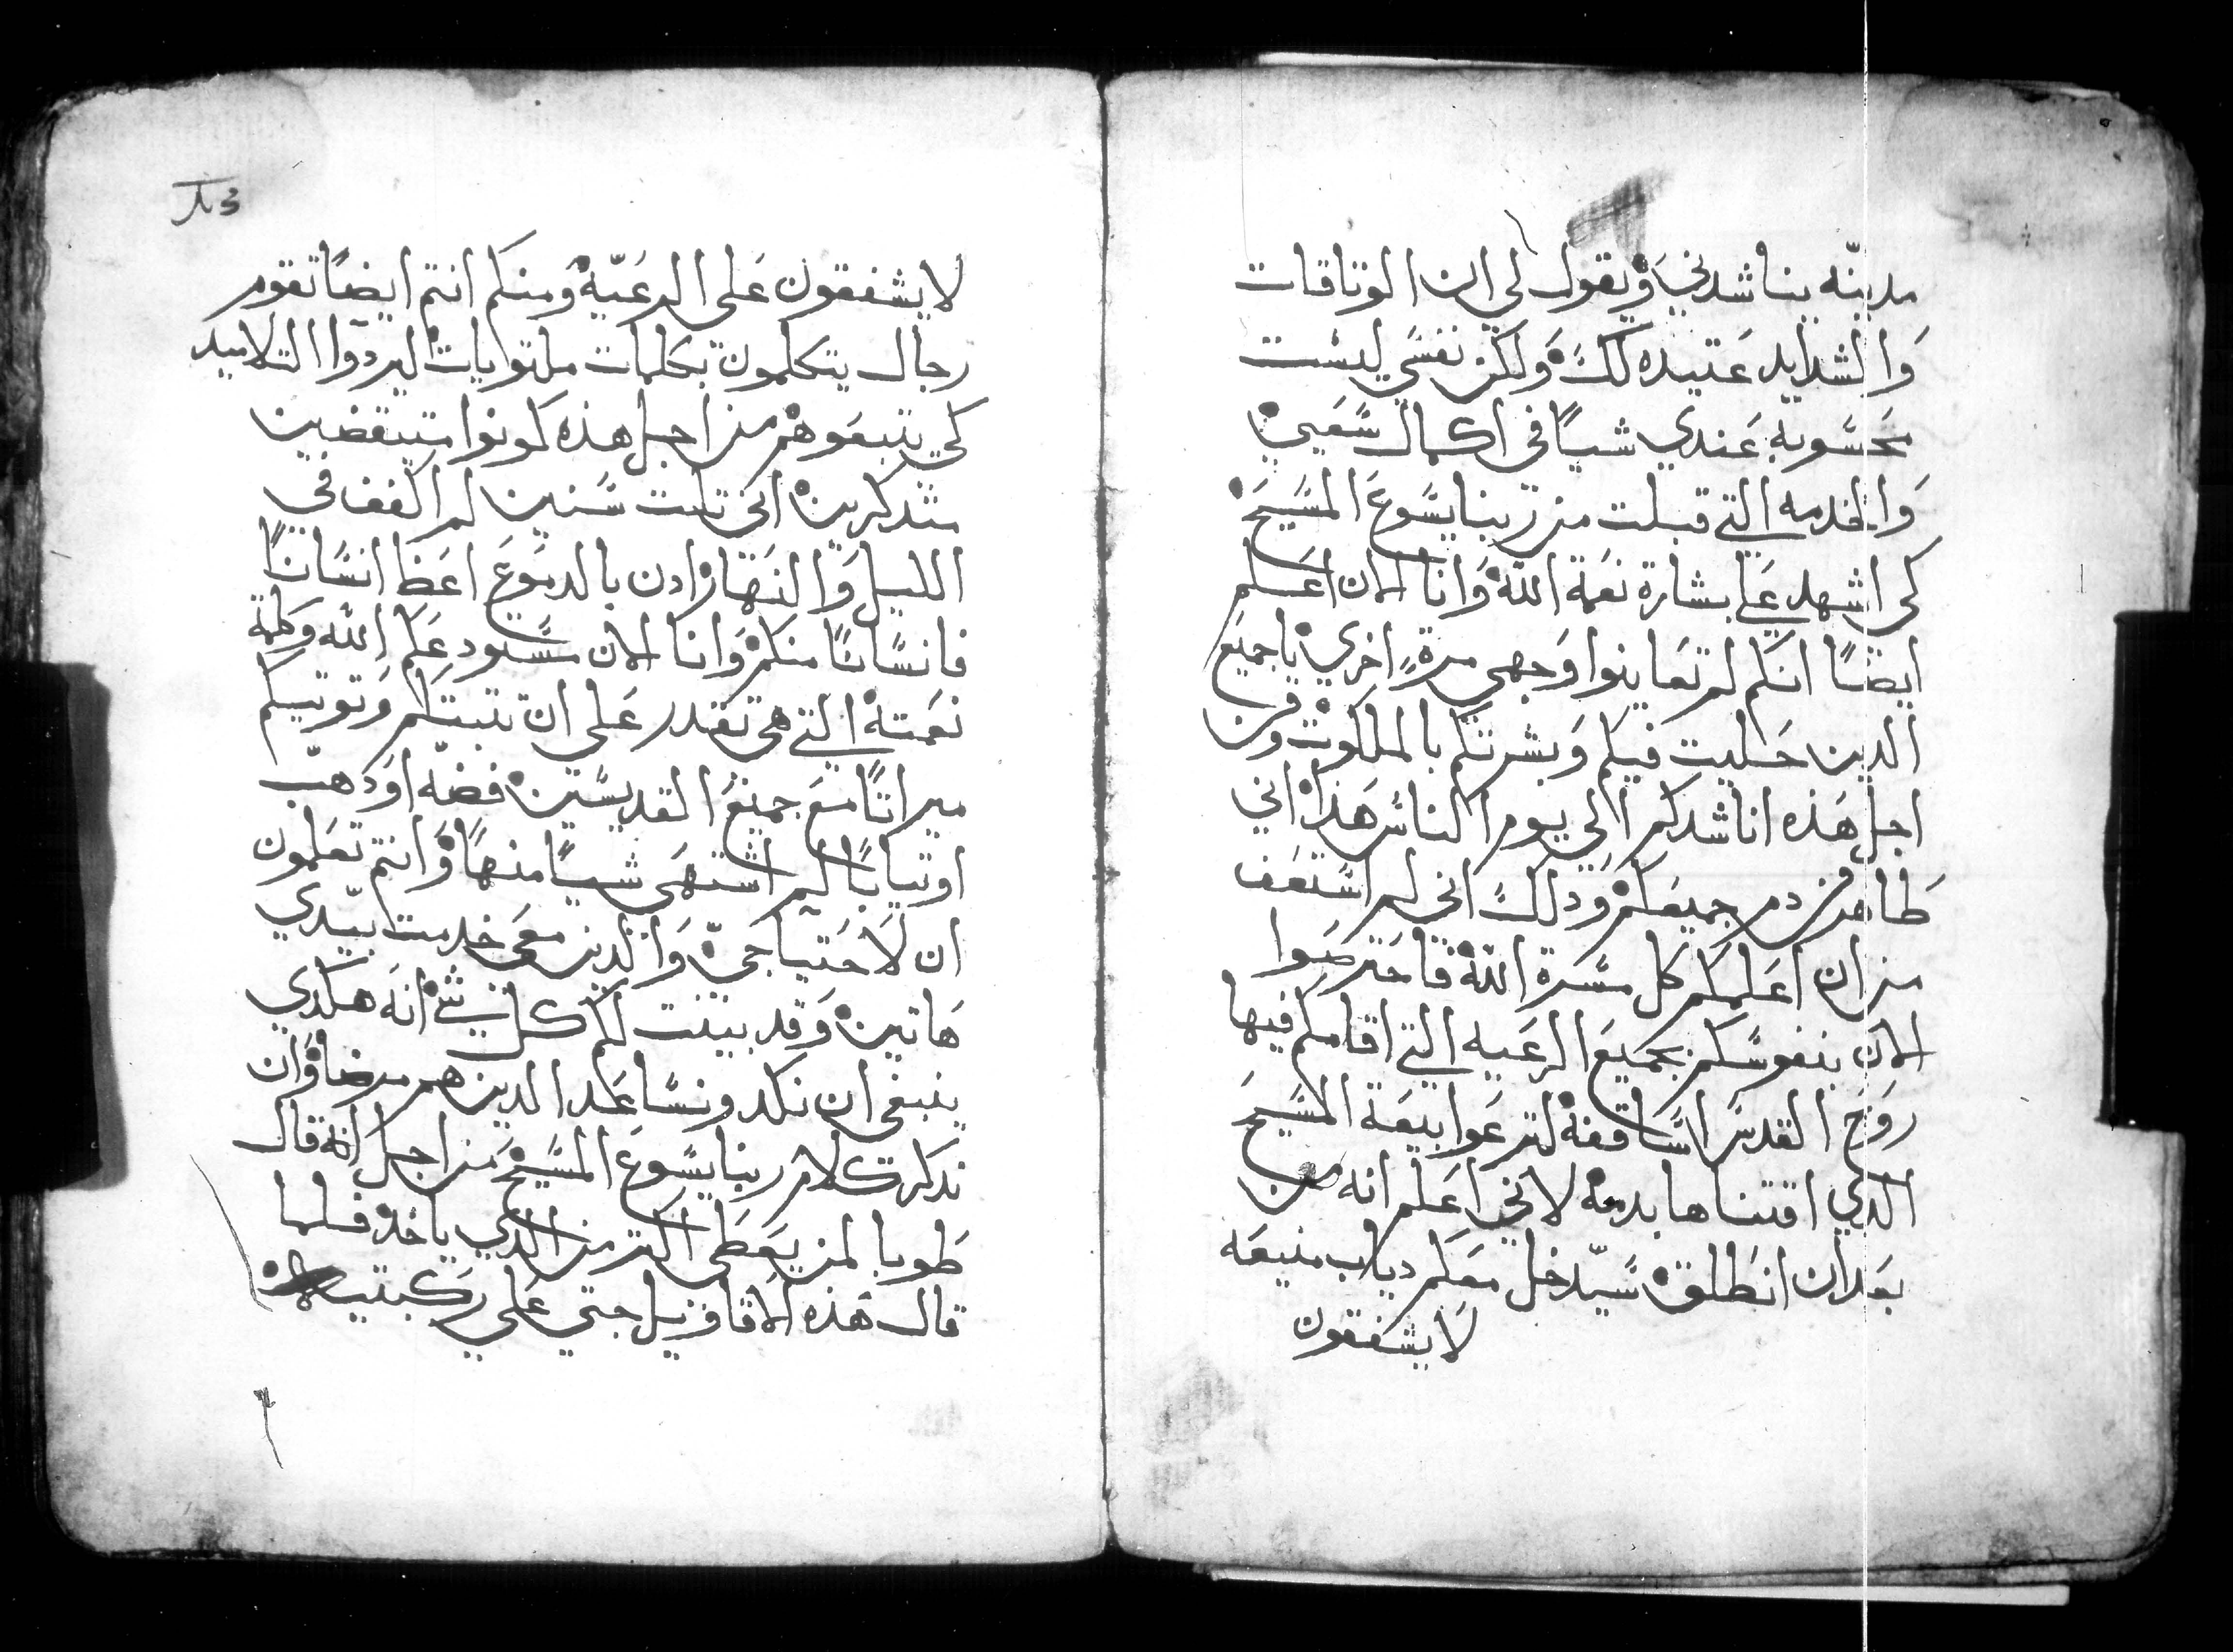 مدينه يناشدني ويقول لي ان الوتاقات
والشدايد عتيده لك ولكن نفسي ليست
محسوبه عندي شيا في اكمال سعيي
والخدمه التي قبلت من ربنا يسوع المسيح
كي اشهد علي بشارة نعمة الله وانا الان اعلم
ايضا انكم لم تعاينوا وجهي مرة اخري يا جميع
الدين حليت فيكم وبشرتكم بالملكوت ومن
اجل هذه اناشدكم الي يوم الناس هذا اني
طاهر من دم جميعكم ودلك اني لم استعف
من ان اعلمكم كل مسرة الله فاحترصوا
الان بنفوسكم بجميع الرعيه التي اقامكم فيها
روح القدس اساقفة لترعوا بيعة المسيح
الدي اقتناها بدمه لاني اعلم انه من
بعد ان انطلق سيدخل معكم دياب منيعه
لا يشفقون
٨٣
لا يشفقون على الرعية ومنكم انتم ايضا تقوم
رجال يتكلمون بكلمات ملتويات ليردوا التلاميد
كي يتبعوهم من اجل هذه كونوا متيقضين
متدكرين اني تلت سنين لم اكفف في
الليل والنهار ادن بالدموع اعظ انسانا
فانسانا منكم وانا الان مستودعكم الله وكلمة
نعمته التي هي تقدر على ان تتبتكم وتوتيكم
ميراتا مع جميع القديسين فضه او دهب
او تيابا لم اشتهى شيا منها وانتم تعلمون
ان لاحتياجي والدين معي خدمت بيدي
هاتين وقد بينت لكم كل شي انه هكدي
ينبغي ان نكد ونساعد الدين هم مرضا وان
ندكر كلام ربنا يسوع المسيح من اجل انه قال
طوبا لمن يعطي اكتر من الدي ياخد فلما
قال هذه الاقاويل جتي علي ركبتيه